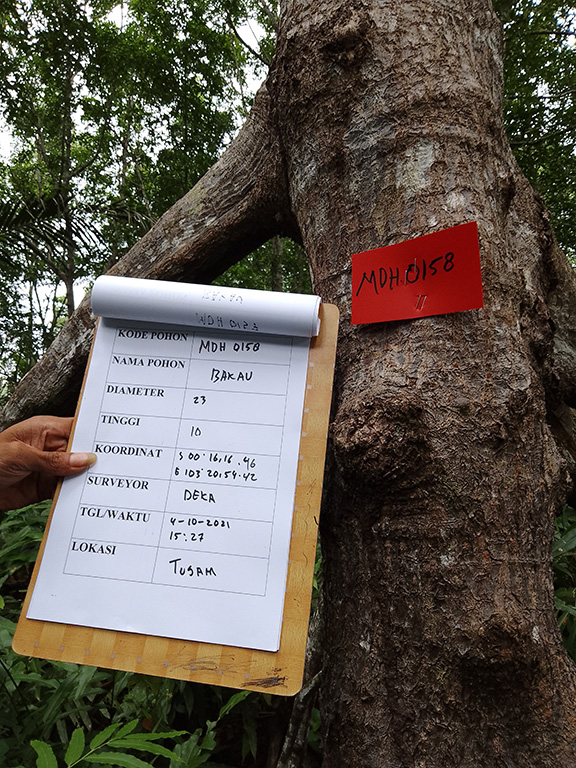 MDH 0158
KODE POHON MDH 0158
NAMA POHON BAKAU
DIAMETER 23
TINGGI 10
KOORDINAT S 00°16,16.46
E 103°20,54.42
SURVEYOR DEKA
TGL/WAKTU 4-10-2021
15:27
LOKASI TUSAM